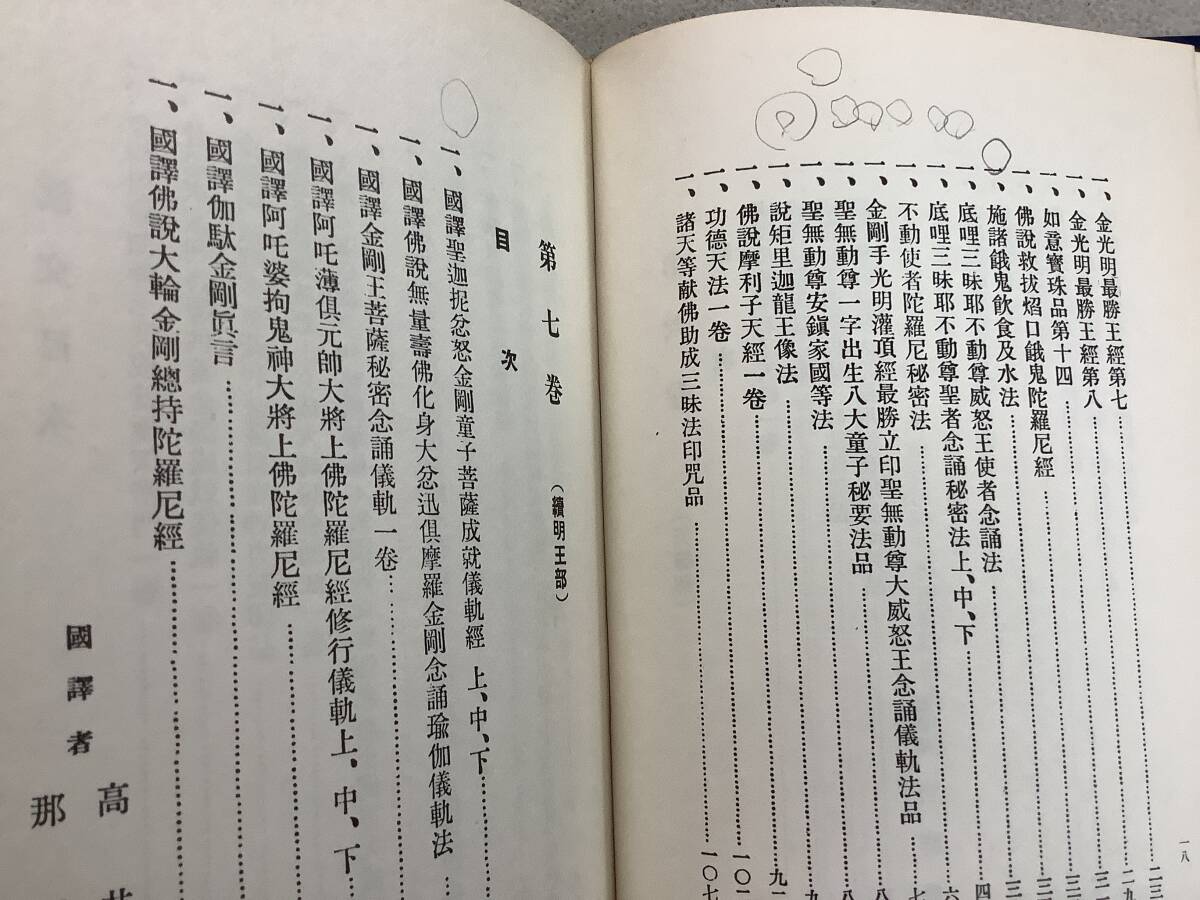 一、金光明最勝王經第七……二三
一、金光明最勝王經第八……二九
一、如意寶珠品第十四……三一
一、佛說救拔焰口餓鬼陀羅尼經……三
一、施諸餓鬼飲食及水法……三
一、底哩三昧耶不動尊威怒王使者念誦法……四
一、底哩三昧耶不動尊聖者念誦秘密法上、中、下……六
一、不動使者陀羅尼秘密法……七
一、金剛手光明灌頂經最勝立印聖無動尊大威怒王念誦儀軌法品……八
一、聖無動尊一字出生八大童子秘要法品……八
一、聖無動尊安鎭家國等法……九
一、說矩里迦龍王像法……九一
一、佛說摩利子天經一卷……一〇一
一、功德天法一卷……一〇二
一、諸天等献佛助成三昧法印咒品……一〇七
一八
第七卷(續明王部)
目次
一、國譯聖迦抳忿怒金剛童子菩薩成就儀軌經 上、中、下……
一、國譯佛說無量壽佛化身大忿迅俱摩羅金剛念誦瑜伽儀軌法
一、國譯金剛王菩薩秘密念誦儀軌一卷……
一、國譯阿吒薄俱元帥大將上佛陀羅尼經修行儀軌上、中、下
一、國譯阿吒婆拘鬼神大將上佛陀羅尼經……
一、國譯伽駄金剛眞言……
一、國譯佛說大輪金剛總持陀羅尼經……
國譯者
高
那